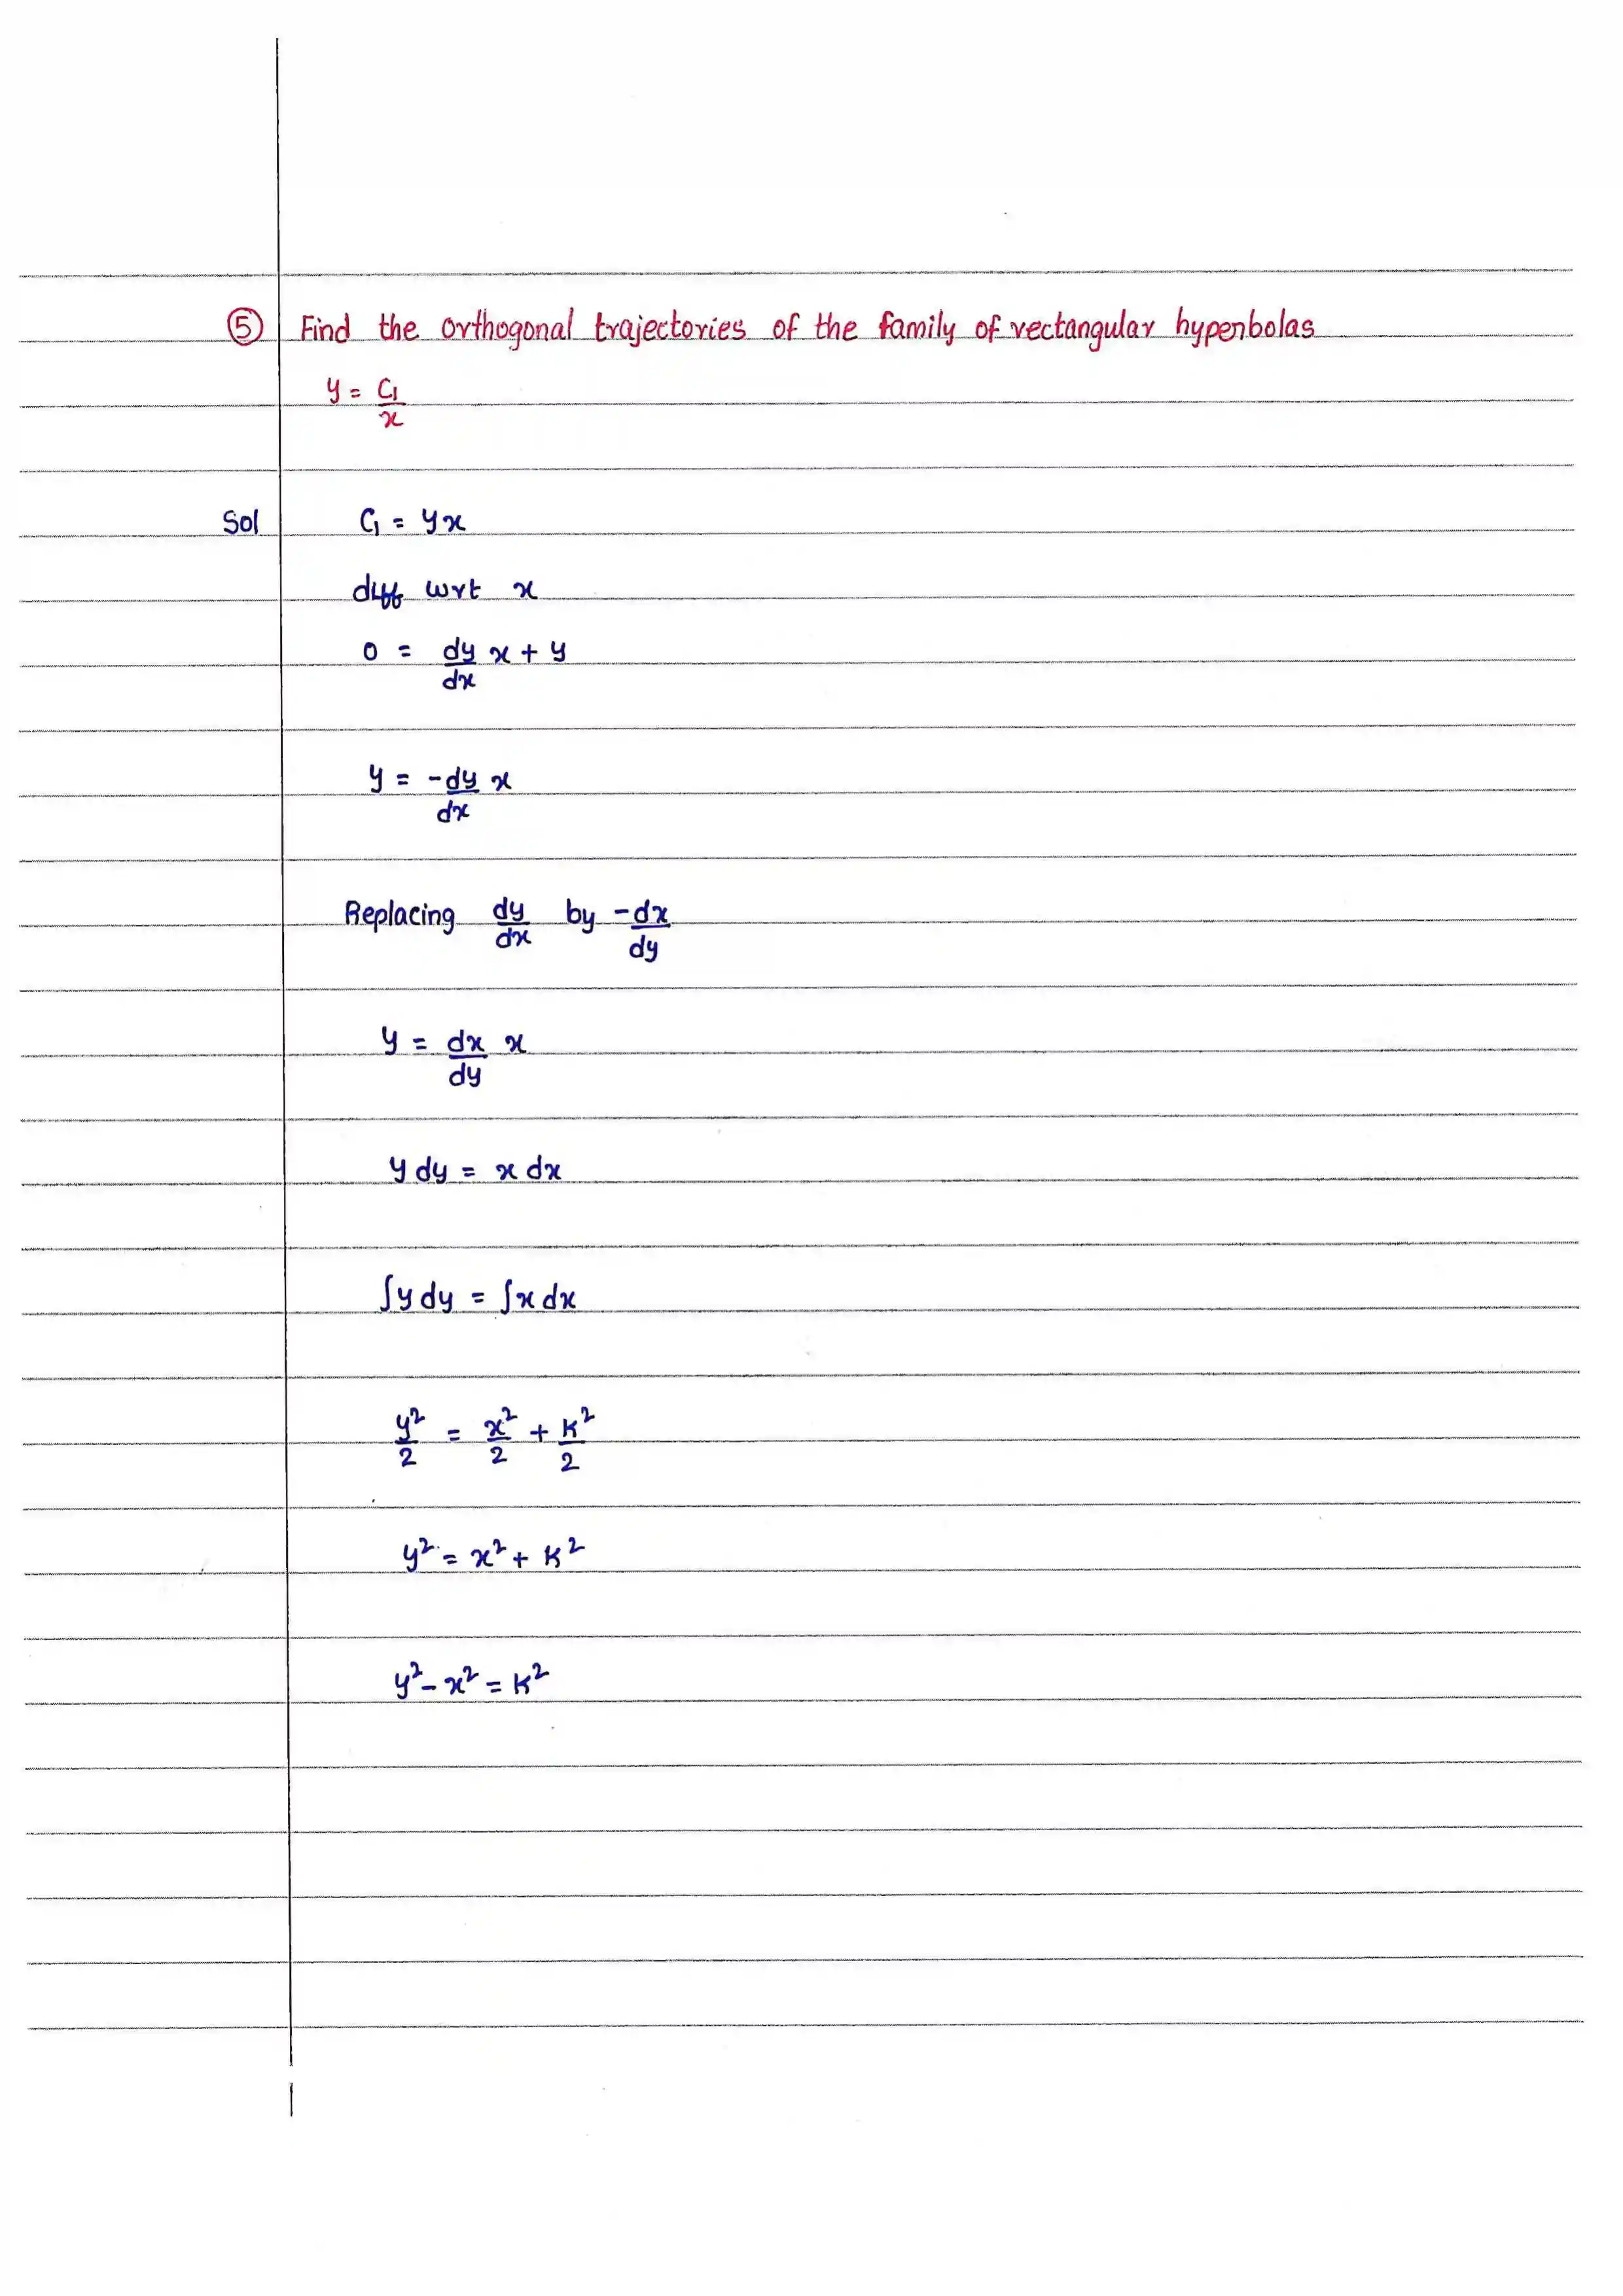 ⑤ Find the orthogonal trajectories of the family of rectangular hyperbolas
y = C₁/x
Sol C₁ = yx
diff wrt x
0 = dy/dx x + y
y = -dy/dx x
Replacing dy/dx by -dx/dy
y = dx/dy x
y dy = x dx
∫y dy = ∫x dx
y²/2 = x²/2 + K²/2
y² = x² + K²
y² - x² = K²